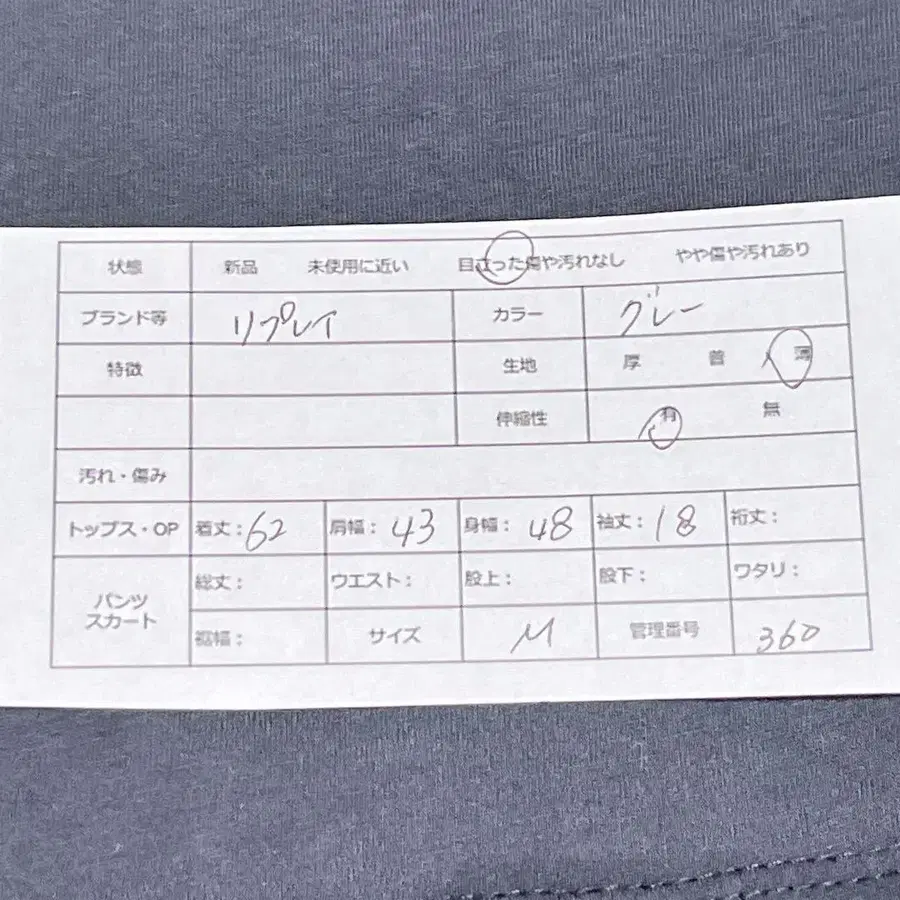 状態 新品 未使用に近い 目立った傷や汚れなし やや傷や汚れあり
ブランド等 リプレイ カラー グレー
特徴 生地 厚 普 薄
伸縮性 有 無
汚れ・傷み
トップス・OP 着丈：62 肩幅：43 身幅：48 袖丈：18 裄丈：
パンツ スカート 総丈： ウエスト： 股上： 股下： ワタリ：
裾幅： サイズ M 管理番号 360